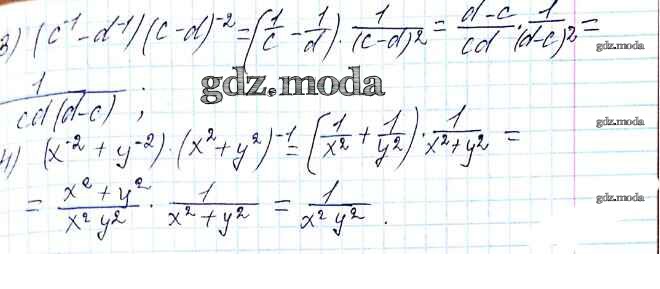 3) (c⁻¹ - d⁻¹)(c - d)⁻² = (1/c - 1/d) · 1/(c-d)² = (d-c)/cd · 1/(d-c)² =
gdz.moda
1/(cd(d-c)) ;
gdz.moda
4) (x⁻² + y⁻²) · (x² + y²)⁻¹ = (1/x² + 1/y²) · 1/(x² + y²) =
gdz.moda
= (x² + y²)/(x² y²) · 1/(x² + y²) = 1/(x² y²) .
gdz.moda